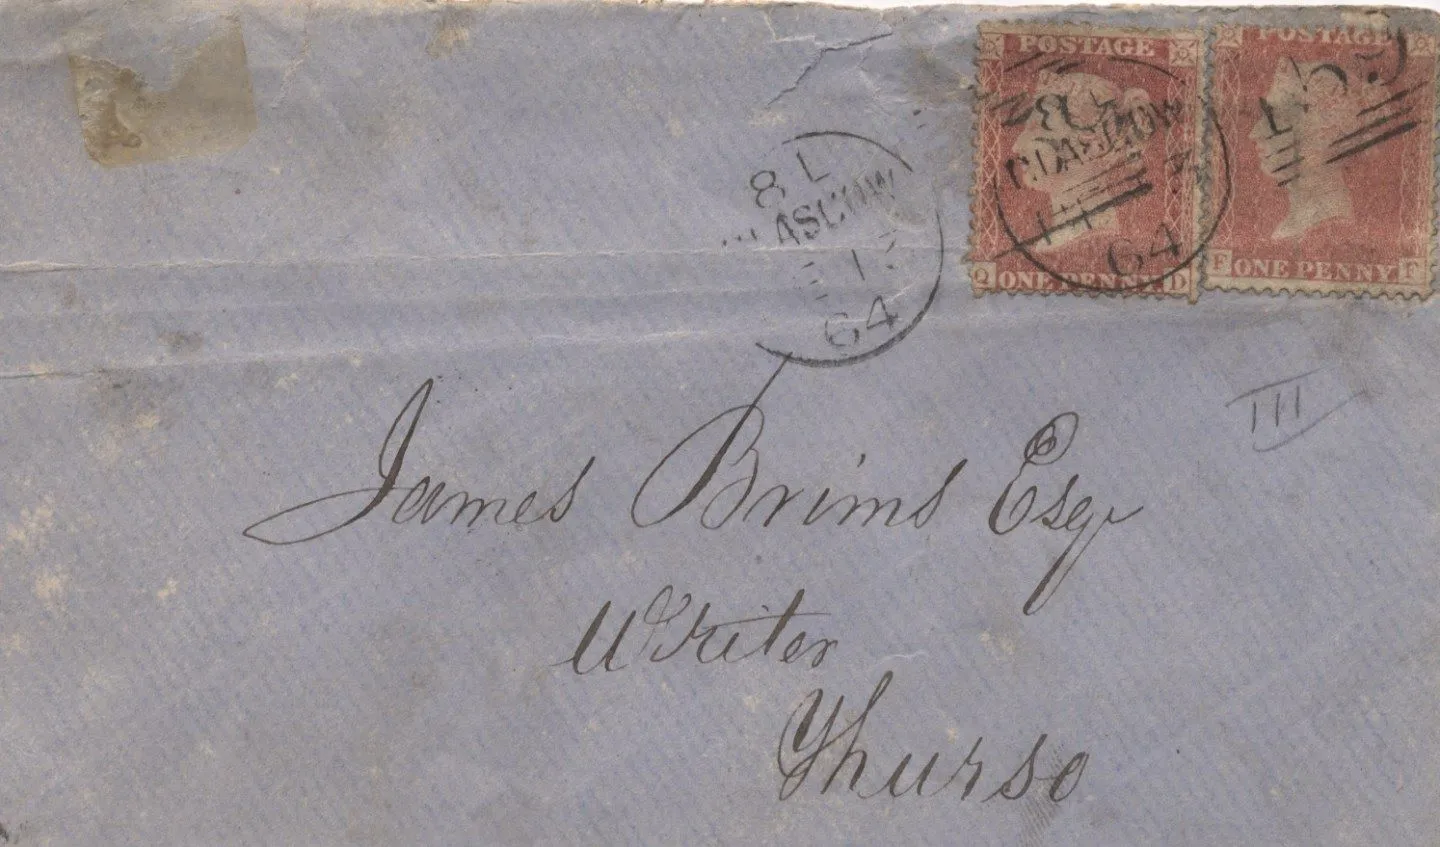 POSTAGE
POSTAGE
GLASGOW
64
159
Q ONE PENNY D
F ONE PENNY F
8 L
LASGOW
64
III
James Brims Esqr
Writer
Thurso